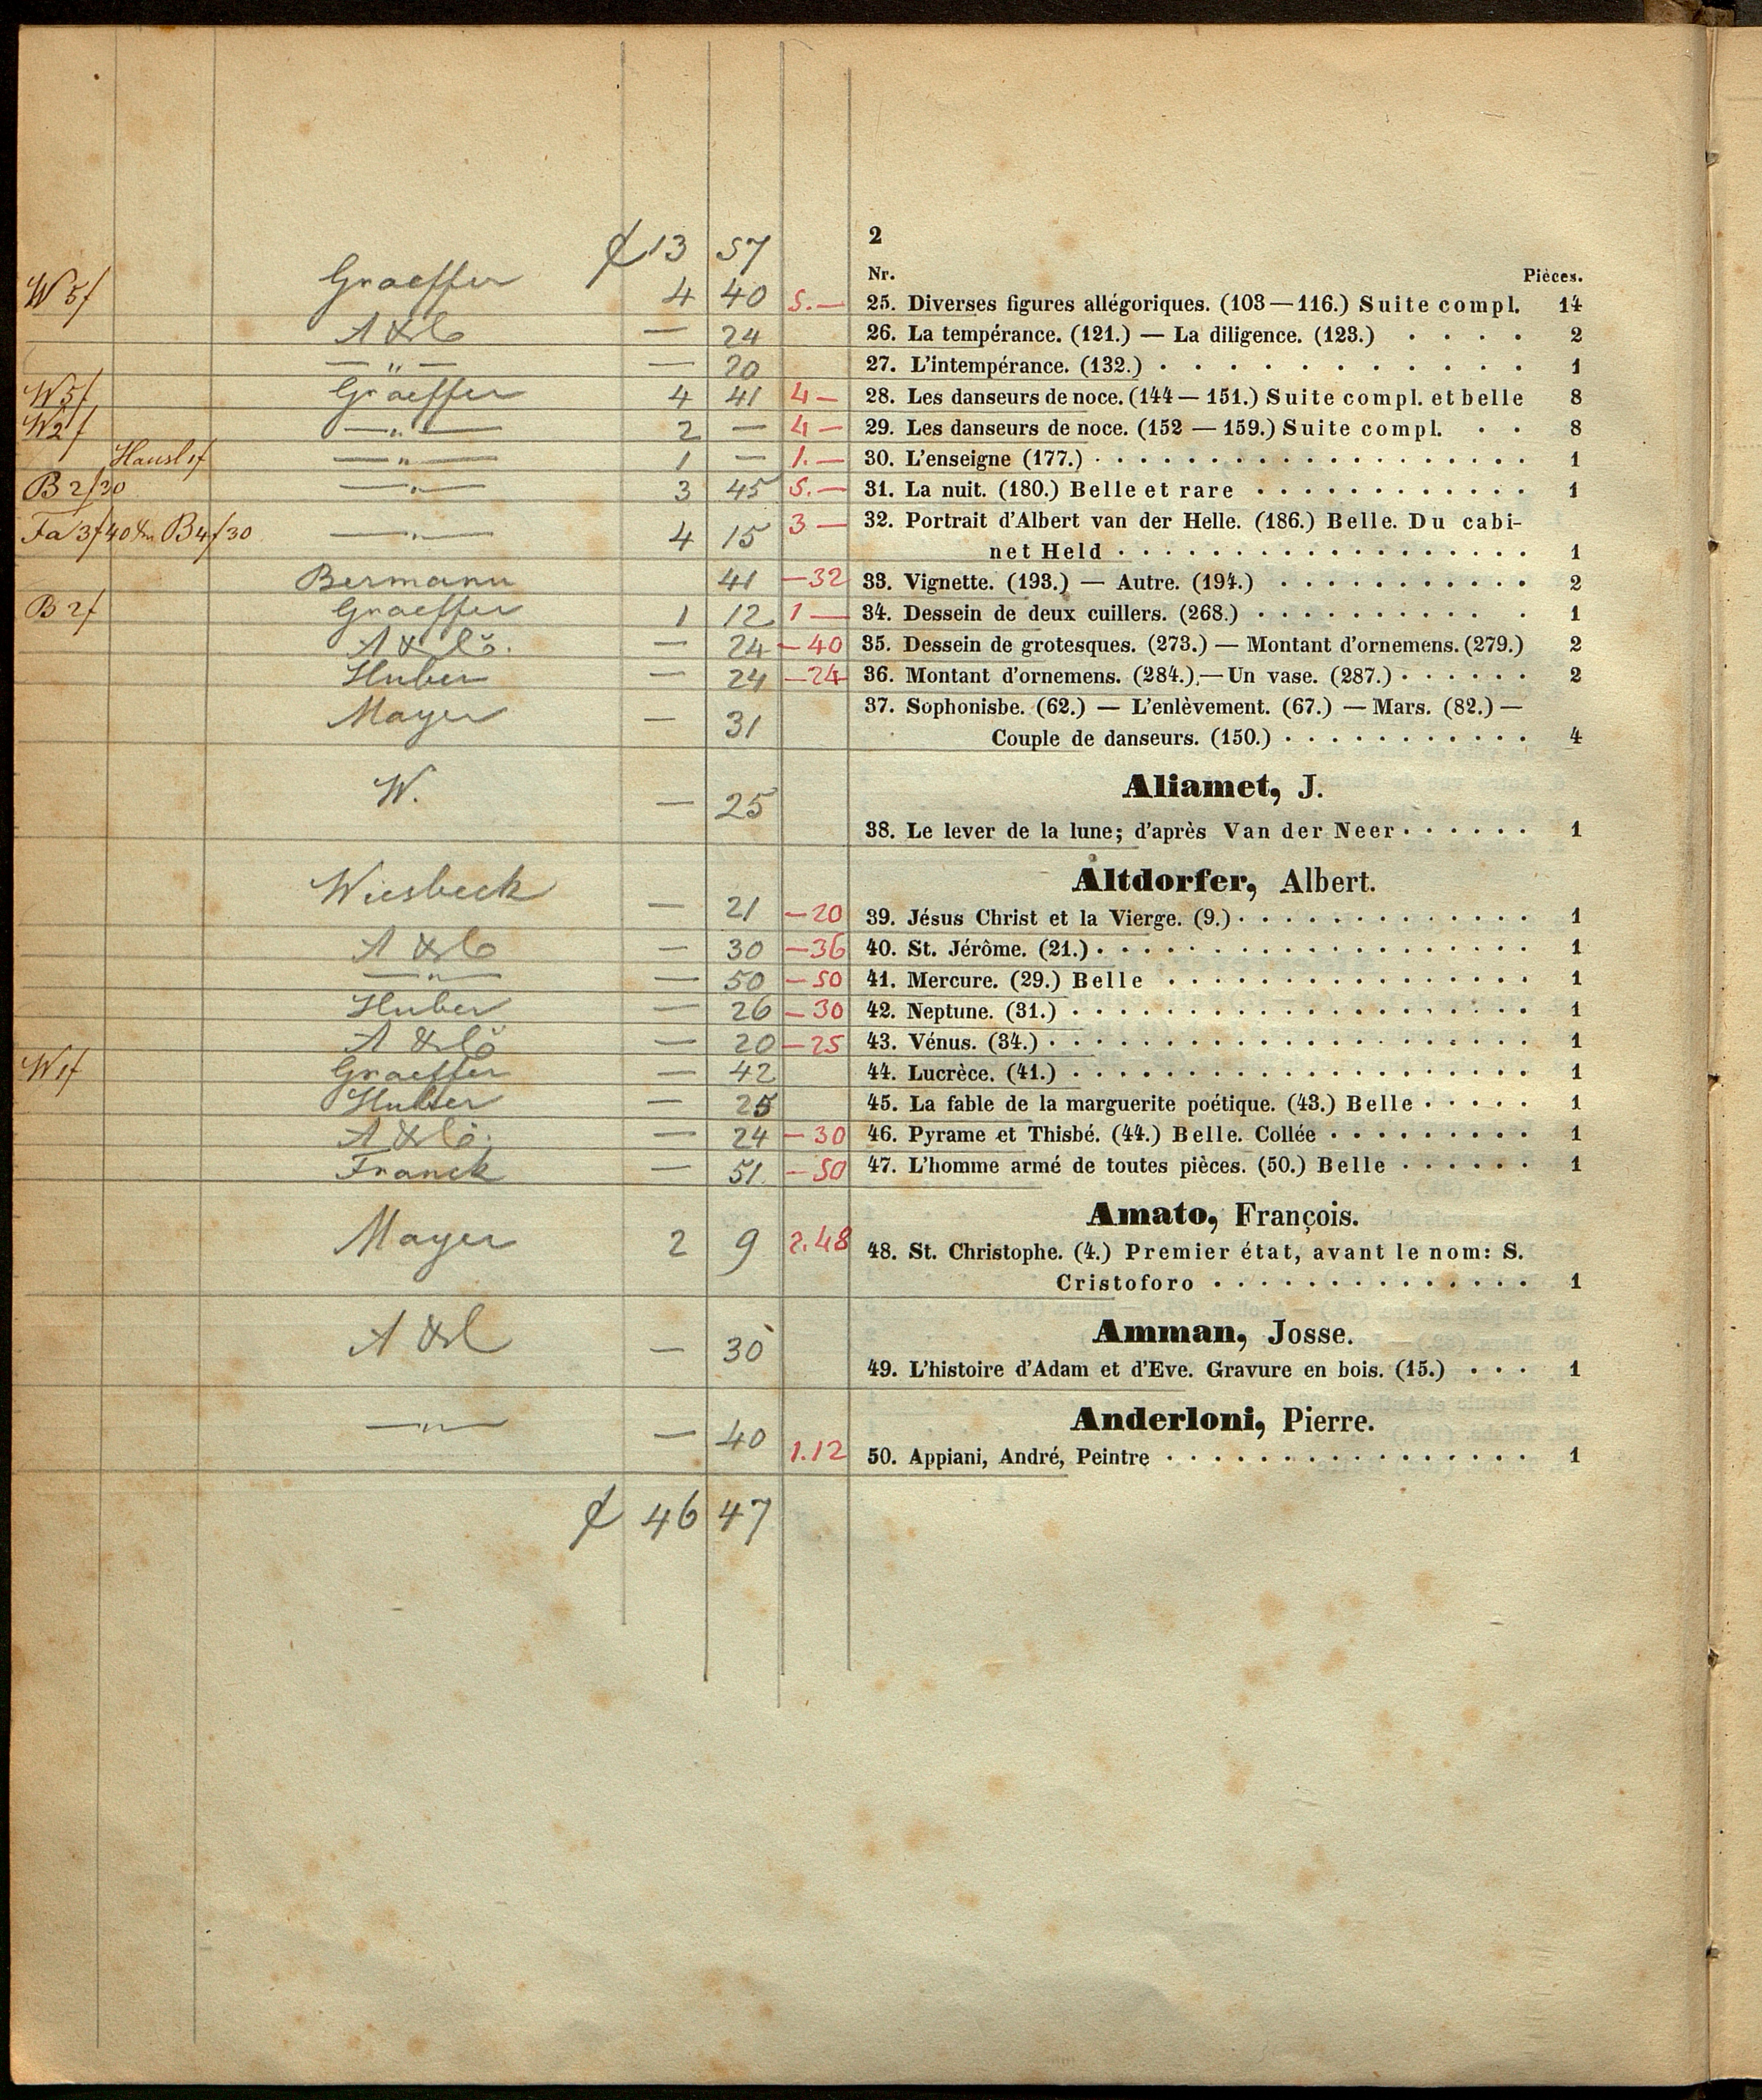 ₰ 13 57
2
Nr. Pièces.
W 5f Graeffer 4 40 5.— 25. Diverses figures allégoriques. (103—116.) Suite compl. 14
— 24 26. La tempérance. (121.) — La diligence. (123.) . . . . 2
— " — — 20 27. L'intempérance. (132.) . . . . . . . . . . . . 1
W 5f Graeffer 4 41 4 — 28. Les danseurs de noce. (144—151.) Suite compl. et belle 8
W 2f — " — 2 — 4 — 29. Les danseurs de noce. (152—159.) Suite compl. . . 8
Hausl 1f — " — 1 — 1.— 30. L'enseigne (177.) . . . . . . . . . . . . . . . . . . . 1
B 2f30 — " — 3 45 5.— 31. La nuit. (180.) Belle et rare . . . . . . . . . . . . 1
Fa 3f40 B4f30 — " — 4 15 3 — 32. Portrait d'Albert van der Helle. (186.) Belle. Du cabi-
net Held . . . . . . . . . . . . . . . . . . 1
Bermann 41 — 32 33. Vignette. (193.) — Autre. (194.) . . . . . . . . . . . 2
B 2f Graeffer 1 12 1 — 34. Dessein de deux cuillers. (268.) . . . . . . . . . . . . 1
— 24 — 40 35. Dessein de grotesques. (273.) — Montant d'ornemens. (279.) 2
Huber — 24 — 24 36. Montant d'ornemens. (284.) — Un vase. (287.) . . . . . . 2
Mayer — 31 37. Sophonisbe. (62.) — L'enlèvement. (67.) — Mars. (82.) —
Couple de danseurs. (150.) . . . . . . . . . . . 4
Aliamet, J.
W. — 25 38. Le lever de la lune; d'après Van der Neer . . . . . . 1
Altdorfer, Albert.
Wiesbeck — 21 — 20 39. Jésus Christ et la Vierge. (9.) . . . . . . . . . . . . . 1
— 30 — 36 40. St. Jérôme. (21.) . . . . . . . . . . . . . . . . . . . 1
— " — — 50 — 50 41. Mercure. (29.) Belle . . . . . . . . . . . . . . . . 1
Huber — 26 — 30 42. Neptune. (31.) . . . . . . . . . . . . . . . . . . . . 1
— 20 — 25 43. Vénus. (34.) . . . . . . . . . . . . . . . . . . . . . 1
W 1f Graeffer — 42 44. Lucrèce. (41.) . . . . . . . . . . . . . . . . . . . . 1
Huber — 25 45. La fable de la marguerite poétique. (43.) Belle . . . . . 1
— 24 — 30 46. Pyrame et Thisbé. (44.) Belle. Collée . . . . . . . . . 1
Franck — 51 — 50 47. L'homme armé de toutes pièces. (50.) Belle . . . . . . 1
Amato, François.
Mayer 2 9 2.48 48. St. Christophe. (4.) Premier état, avant le nom: S.
Cristoforo . . . . . . . . . . . . . . 1
Amman, Josse.
— 30 49. L'histoire d'Adam et d'Eve. Gravure en bois. (15.) . . . 1
Anderloni, Pierre.
— " — — 40 1.12 50. Appiani, André, Peintre . . . . . . . . . . . . . . . . 1
₰ 46 47